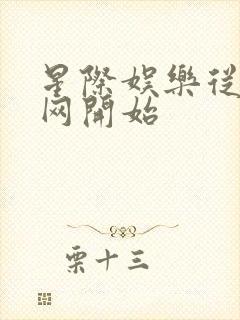 星際娛樂從
网開始
栗十三